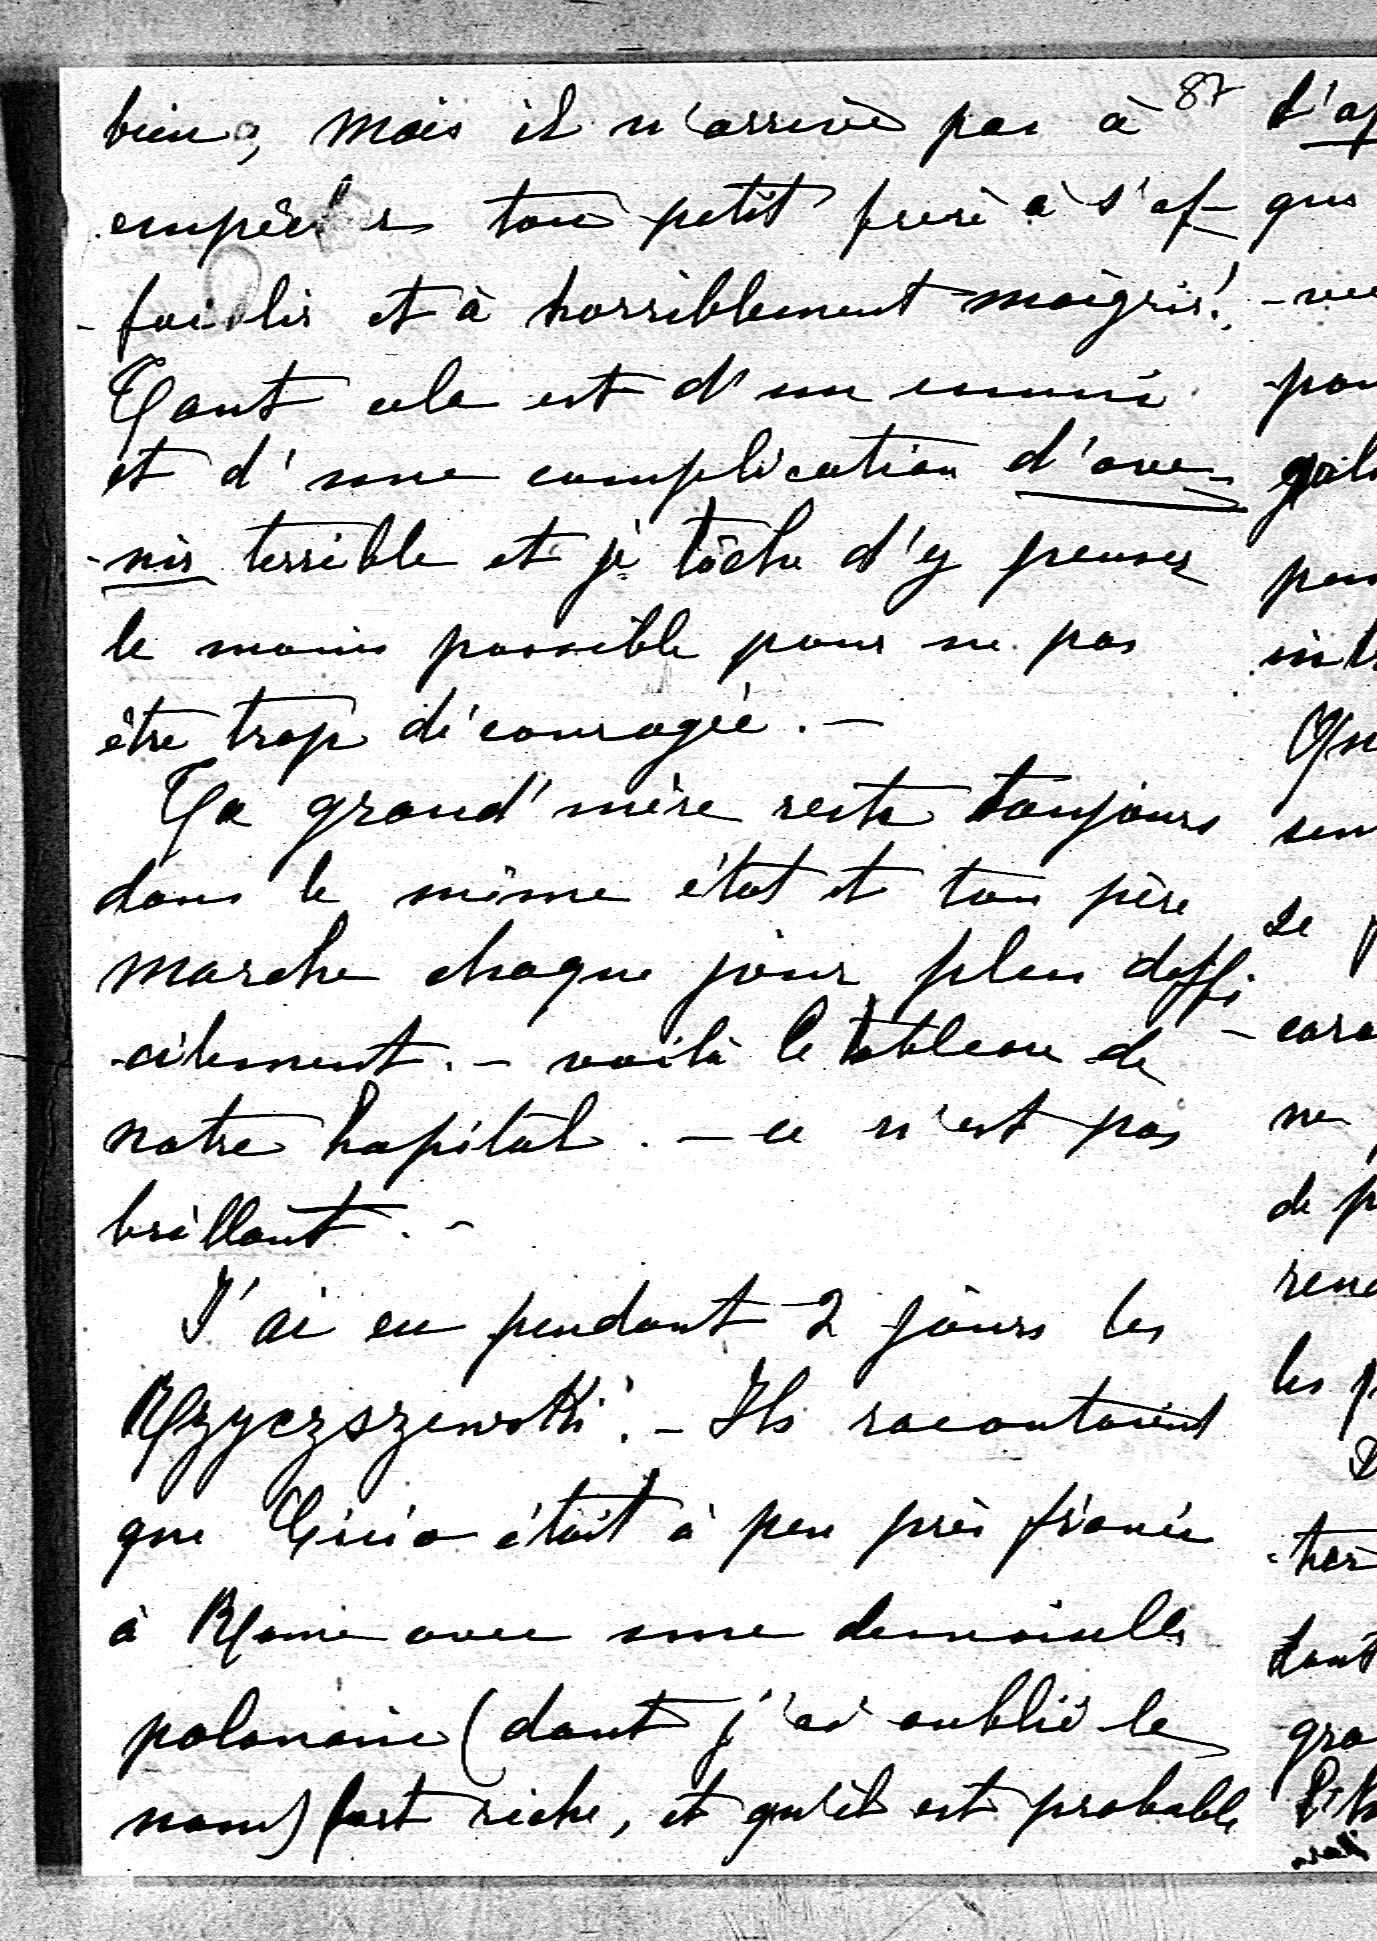 87
bien, mais il n'arrive pas à
empêcher ton petit frère à s'af-
-faiblir et à horriblement maigrir!
Tout cela est d'un ennui
et d'une complication d'ave-
-nir terrible et je tâche d'y penser
le moins possible pour ne pas
être trop découragée. -
Ta grand'mère reste toujours
dans le même état et ton père
marche chaque jour plus diffi
-cilement. - voilà le tableau de
notre hopital. - ce n'est pas
brillant. -
J'ai eu pendant 2 jours les
Rzyczszewski. - Ils racontaient
que était à peu près fiancé
à Rome avec une demoiselle
polonaise (dont j'ai oublié le
nom) fort riche, et qu'il est probable